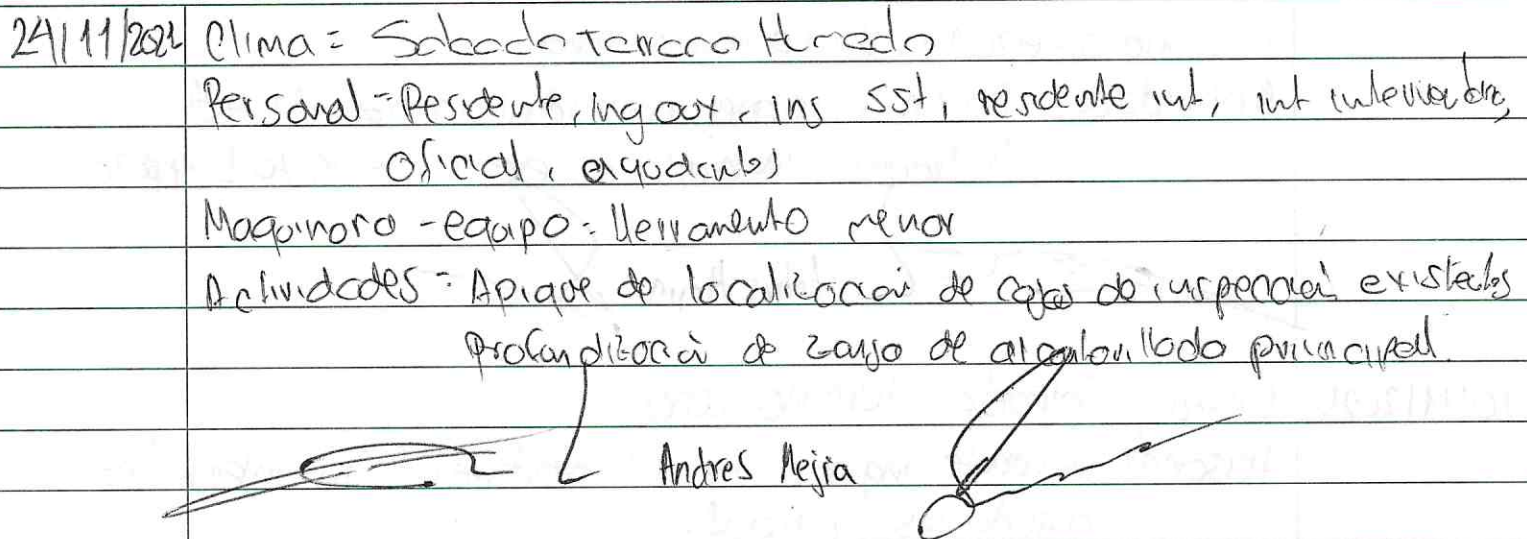 24/11/2021 Clima = Soleado Terreno Humedo
Personal = Residente, ing aux, ins sst, residente int, int interventoria,
oficial, ayudantes
Maquinaria - equipo = Herramienta menor
Actividades = Apique de localización de cajas de inspección existentes
profundización de zanja de alcantarillado principal.
Andres Mejia